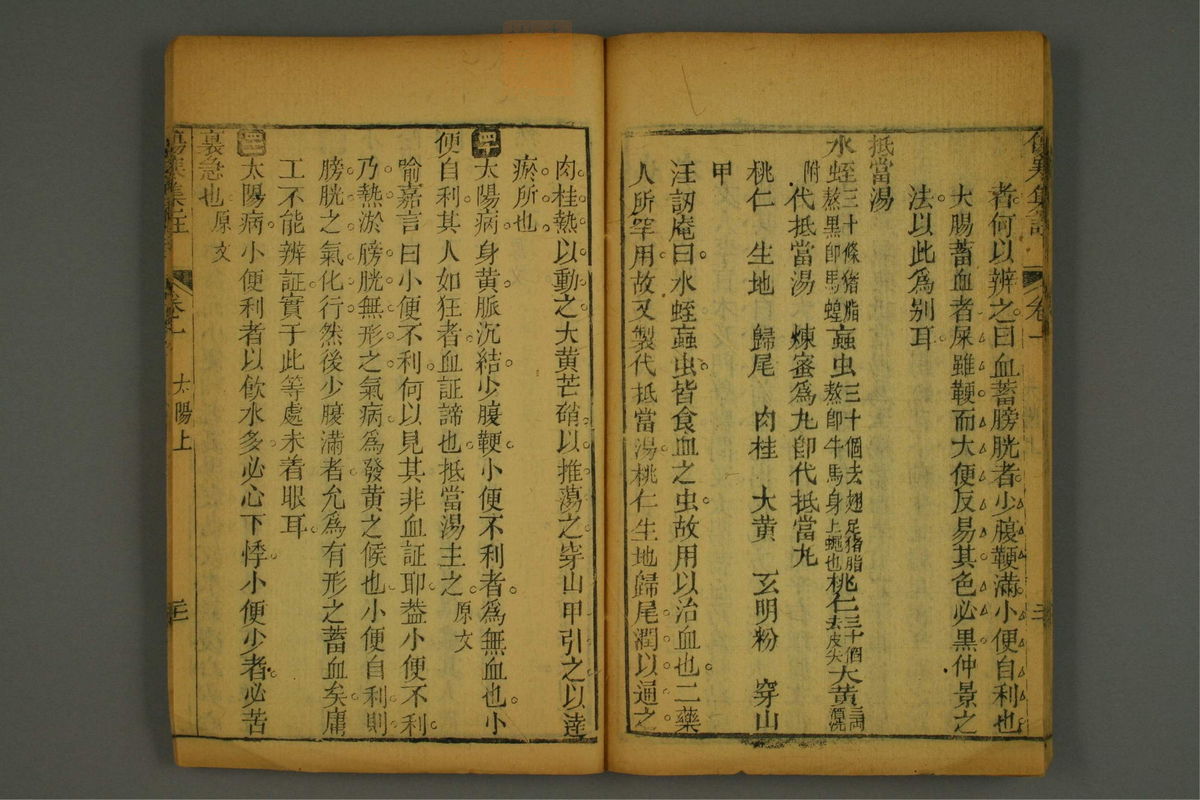 傷寒集註
卷一
者何以辨之曰血蓄膀胱者少腹鞕滿小便自利也
大腸蓄血者屎雖鞕而大便反易其色必黑仲景之
法以此爲别耳
抵當湯
水蛭三十條猪脂熬黒卽馬蝗䖟虫三十個去翅足猪脂熬卽牛馬身上蝇也桃仁三十個去皮尖大黄三両酒洗
附代抵當湯 煉蜜爲丸卽代抵當丸
桃仁 生地 歸尾 肉桂 大黄 玄明粉 穿山
甲
汪訒庵曰水蛭䖟虫皆食血之虫故用以治血也二藥
人所罕用故又製代抵當湯桃仁生地歸尾潤以通之
肉桂熱以動之大黄芒硝以推蕩之穿山甲引之以達
瘀所也
四十 太陽病身黄脈沉結少腹鞕小便不利者爲無血也小
便自利其人如狂者血証諦也抵當湯主之原文
喻嘉言曰小便不利何以見其非血証耶葢小便不利
乃熱淤膀胱無形之氣病爲發黄之候也小便自利則
膀胱之氣化行然後少腹滿者允爲有形之蓄血矣庸
工不能辨証實于此等處未着眼耳
太陽病小便利者以飲水多必心下悸小便少者必苦
裏急也原文
傷寒集註
卷一
太陽上